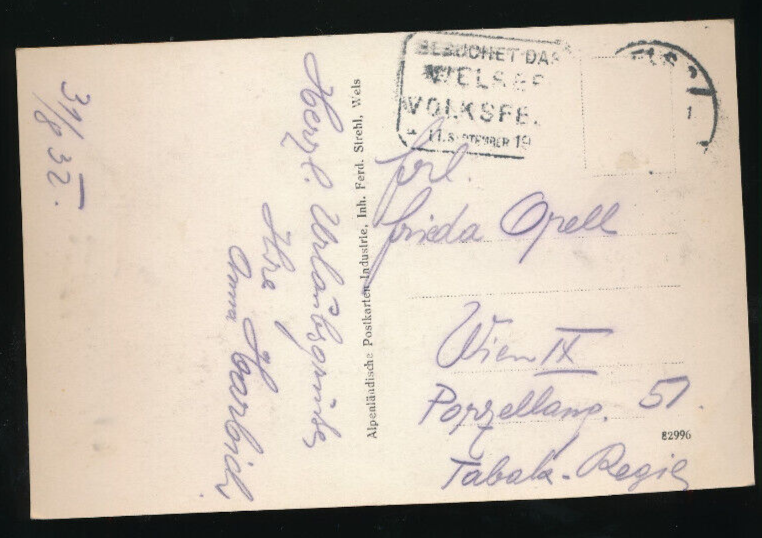 31/8 32.
Herzl. Urlaubsgrüße
Ihre
Anna
Alpenländische Postkarten Industrie, Inh. Ferd. Strehl, Wels
BESUCHET DAS
WELSER
VOLKSFE.
11. SEPTEMBER 19
Frl.
Frieda Opell
Wien IX
Porzellang. 51.
82996
Tabak-Regie